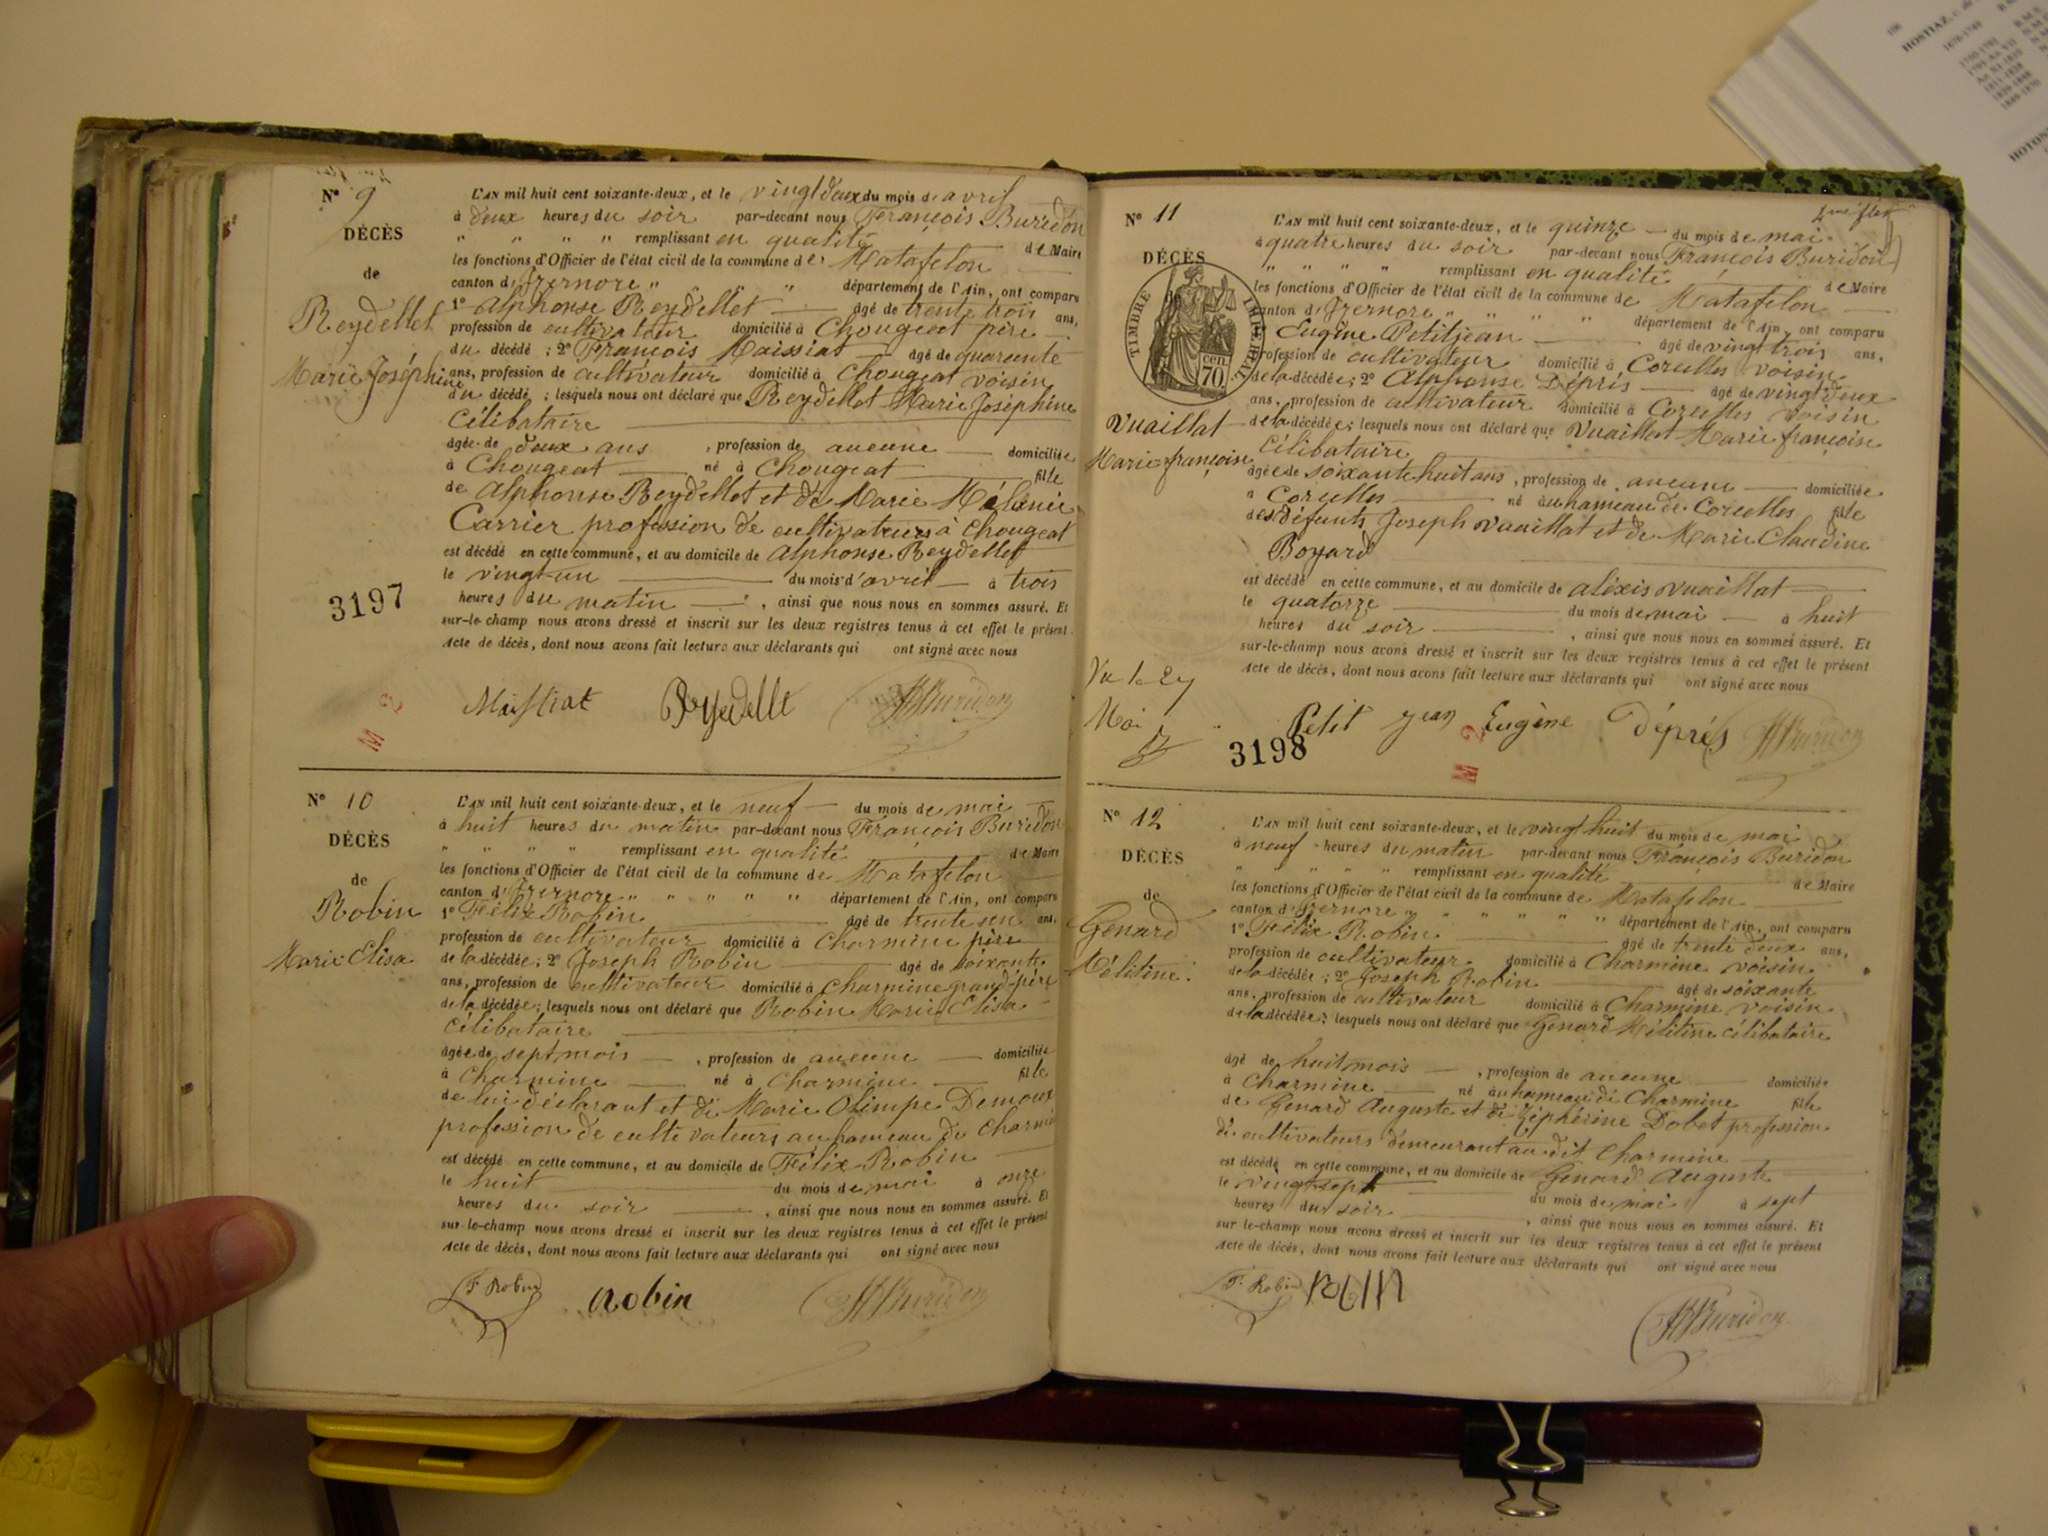 N° 9
DÉCÈS
de
Reydellet
Marie Joséphine
L'AN mil huit cent soixante-deux, et le vingt deux du mois d'avril
à deux heures du soir par-devant nous François Buridon
" " " " remplissant en qualité de Maire
les fonctions d'Officier de l'état civil de la commune de Matafelon
canton d'Izernore " " " département de l'Ain, ont comparu
1° Alphonse Reydellet âgé de trente trois ans,
profession de cultivateur domicilié à Chougeat père
du décédé ; 2° François Maissiat âgé de quarante
ans, profession de cultivateur domicilié à Chougeat voisin
du décédé ; lesquels nous ont déclaré que Reydellet Marie Joséphine
célibataire
âgée de deux ans , profession de aucune domiciliée
à Chougeat né à Chougeat fille
de Alphonse Reydellet et de Marie Mélanie
Carrier profession de cultivateurs à Chougeat
est décédé en cette commune, et au domicile de Alphonse Reydellet
le vingt-un du mois d'avril à trois
heures du matin , ainsi que nous nous en sommes assuré. Et
sur-le-champ nous avons dressé et inscrit sur les deux registres tenus à cet effet le présent
acte de décès, dont nous avons fait lecture aux déclarants qui ont signé avec nous
3197
M 2
Maissiat Reydelle Buridon
N° 10
DÉCÈS
de
Robin
Marie Elisa
L'AN mil huit cent soixante-deux, et le neuf du mois de mai
à huit heures du matin par-devant nous François Buridon
" " " " remplissant en qualité de Maire
les fonctions d'Officier de l'état civil de la commune de Matafelon
canton d'Izernore " " " " " département de l'Ain, ont comparu
1° Félix Robin âgé de trente un ans,
profession de cultivateur domicilié à Charmine père
de la décédée ; 2° Joseph Robin âgé de soixante
ans, profession de cultivateur domicilié à Charmine grand-père
de la décédée ; lesquels nous ont déclaré que Robin Marie Elisa
célibataire
âgée de sept mois , profession de aucune domiciliée
à Charmine né à Charmine fille
de lui déclarant et de Marie Olimpe Demoux
profession de cultivateurs au hameau de Charmi
est décédé en cette commune, et au domicile de Félix Robin
le huit du mois de mai à onze
heures du soir , ainsi que nous nous en sommes assuré. Et
sur-le-champ nous avons dressé et inscrit sur les deux registres tenus à cet effet le présent
acte de décès, dont nous avons fait lecture aux déclarants qui ont signé avec nous
F. Robin Robin Buridon
N° 11
DÉCÈS
TIMBRE IMPÉRIAL
70 cen
Vuaillat
Marie françoise
L'AN mil huit cent soixante-deux, et le quinze du mois de mai
à quatre heures du soir par-devant nous François Buridon
" " " " remplissant en qualité de Maire
les fonctions d'Officier de l'état civil de la commune de Matafelon
canton d'Izernore " " " " département de l'Ain, ont comparu
Eugène Petitjean âgé de vingt trois ans,
profession de cultivateur domicilié à Corcelles voisin
de la décédée ; 2° Alphonse Dépris âgé de vingt deux
ans, profession de cultivateur domicilié à Corcelles voisin
de la décédée ; lesquels nous ont déclaré que Vuaillat Marie françoise
célibataire
âgée de soixante huit ans , profession de aucune domiciliée
à Corcelles né au hameau de Corcelles fille
des défunts Joseph Vuaillat et de Marie Claudine
Boyard
est décédé en cette commune, et au domicile de aléxis Vuaillat
le quatorze du mois de mai à huit
heures du soir , ainsi que nous nous en sommes assuré. Et
sur-le-champ nous avons dressé et inscrit sur les deux registres tenus à cet effet le présent
acte de décès, dont nous avons fait lecture aux déclarants qui ont signé avec nous
Vu le 27
Mai
Petit jean Eugène déprés Buridon
3198
M 2
N° 12
DÉCÈS
de
Genard
Mélitine
L'AN mil huit cent soixante-deux, et le vingt huit du mois de mai
à neuf heures du matin par-devant nous François Buridon
" " " " remplissant en qualité de Maire
les fonctions d'Officier de l'état civil de la commune de Matafelon
canton d'Izernore " " " " " " département de l'Ain, ont comparu
1° Félix Robin âgé de trente deux ans,
profession de cultivateur domicilié à Charmine voisin
de la décédée ; 2° Joseph Robin âgé de soixante
ans, profession de cultivateur domicilié à Charmine voisin
de la décédée ; lesquels nous ont déclaré que Genard Mélitine célibataire
âgé de huit mois , profession de aucune domiciliée
à Charmine né au hameau de Charmine fille
de Genard Auguste et de Zéphérine Dobet profession
de cultivateurs demeurant au dit Charmine
est décédé en cette commune, et au domicile de Genard Auguste
le vingt sept du mois de mai à sept
heures du soir , ainsi que nous nous en sommes assuré. Et
sur-le-champ nous avons dressé et inscrit sur les deux registres tenus à cet effet le présent
acte de décès, dont nous avons fait lecture aux déclarants qui ont signé avec nous
F. Robin Robin Buridon
HOSTIAZ